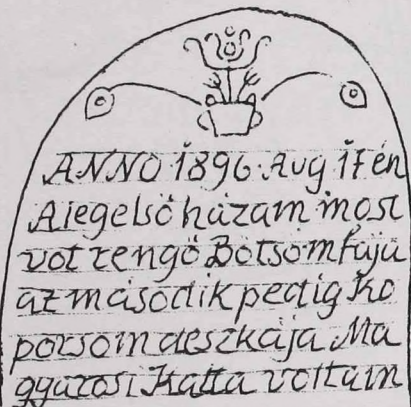 ANNO 1896 Aug 17 én
A legelsö házam most
vot rengö Bötsom fája
az második pedig Ko
porsom deszkája Ma
gyarosi Katta voltam